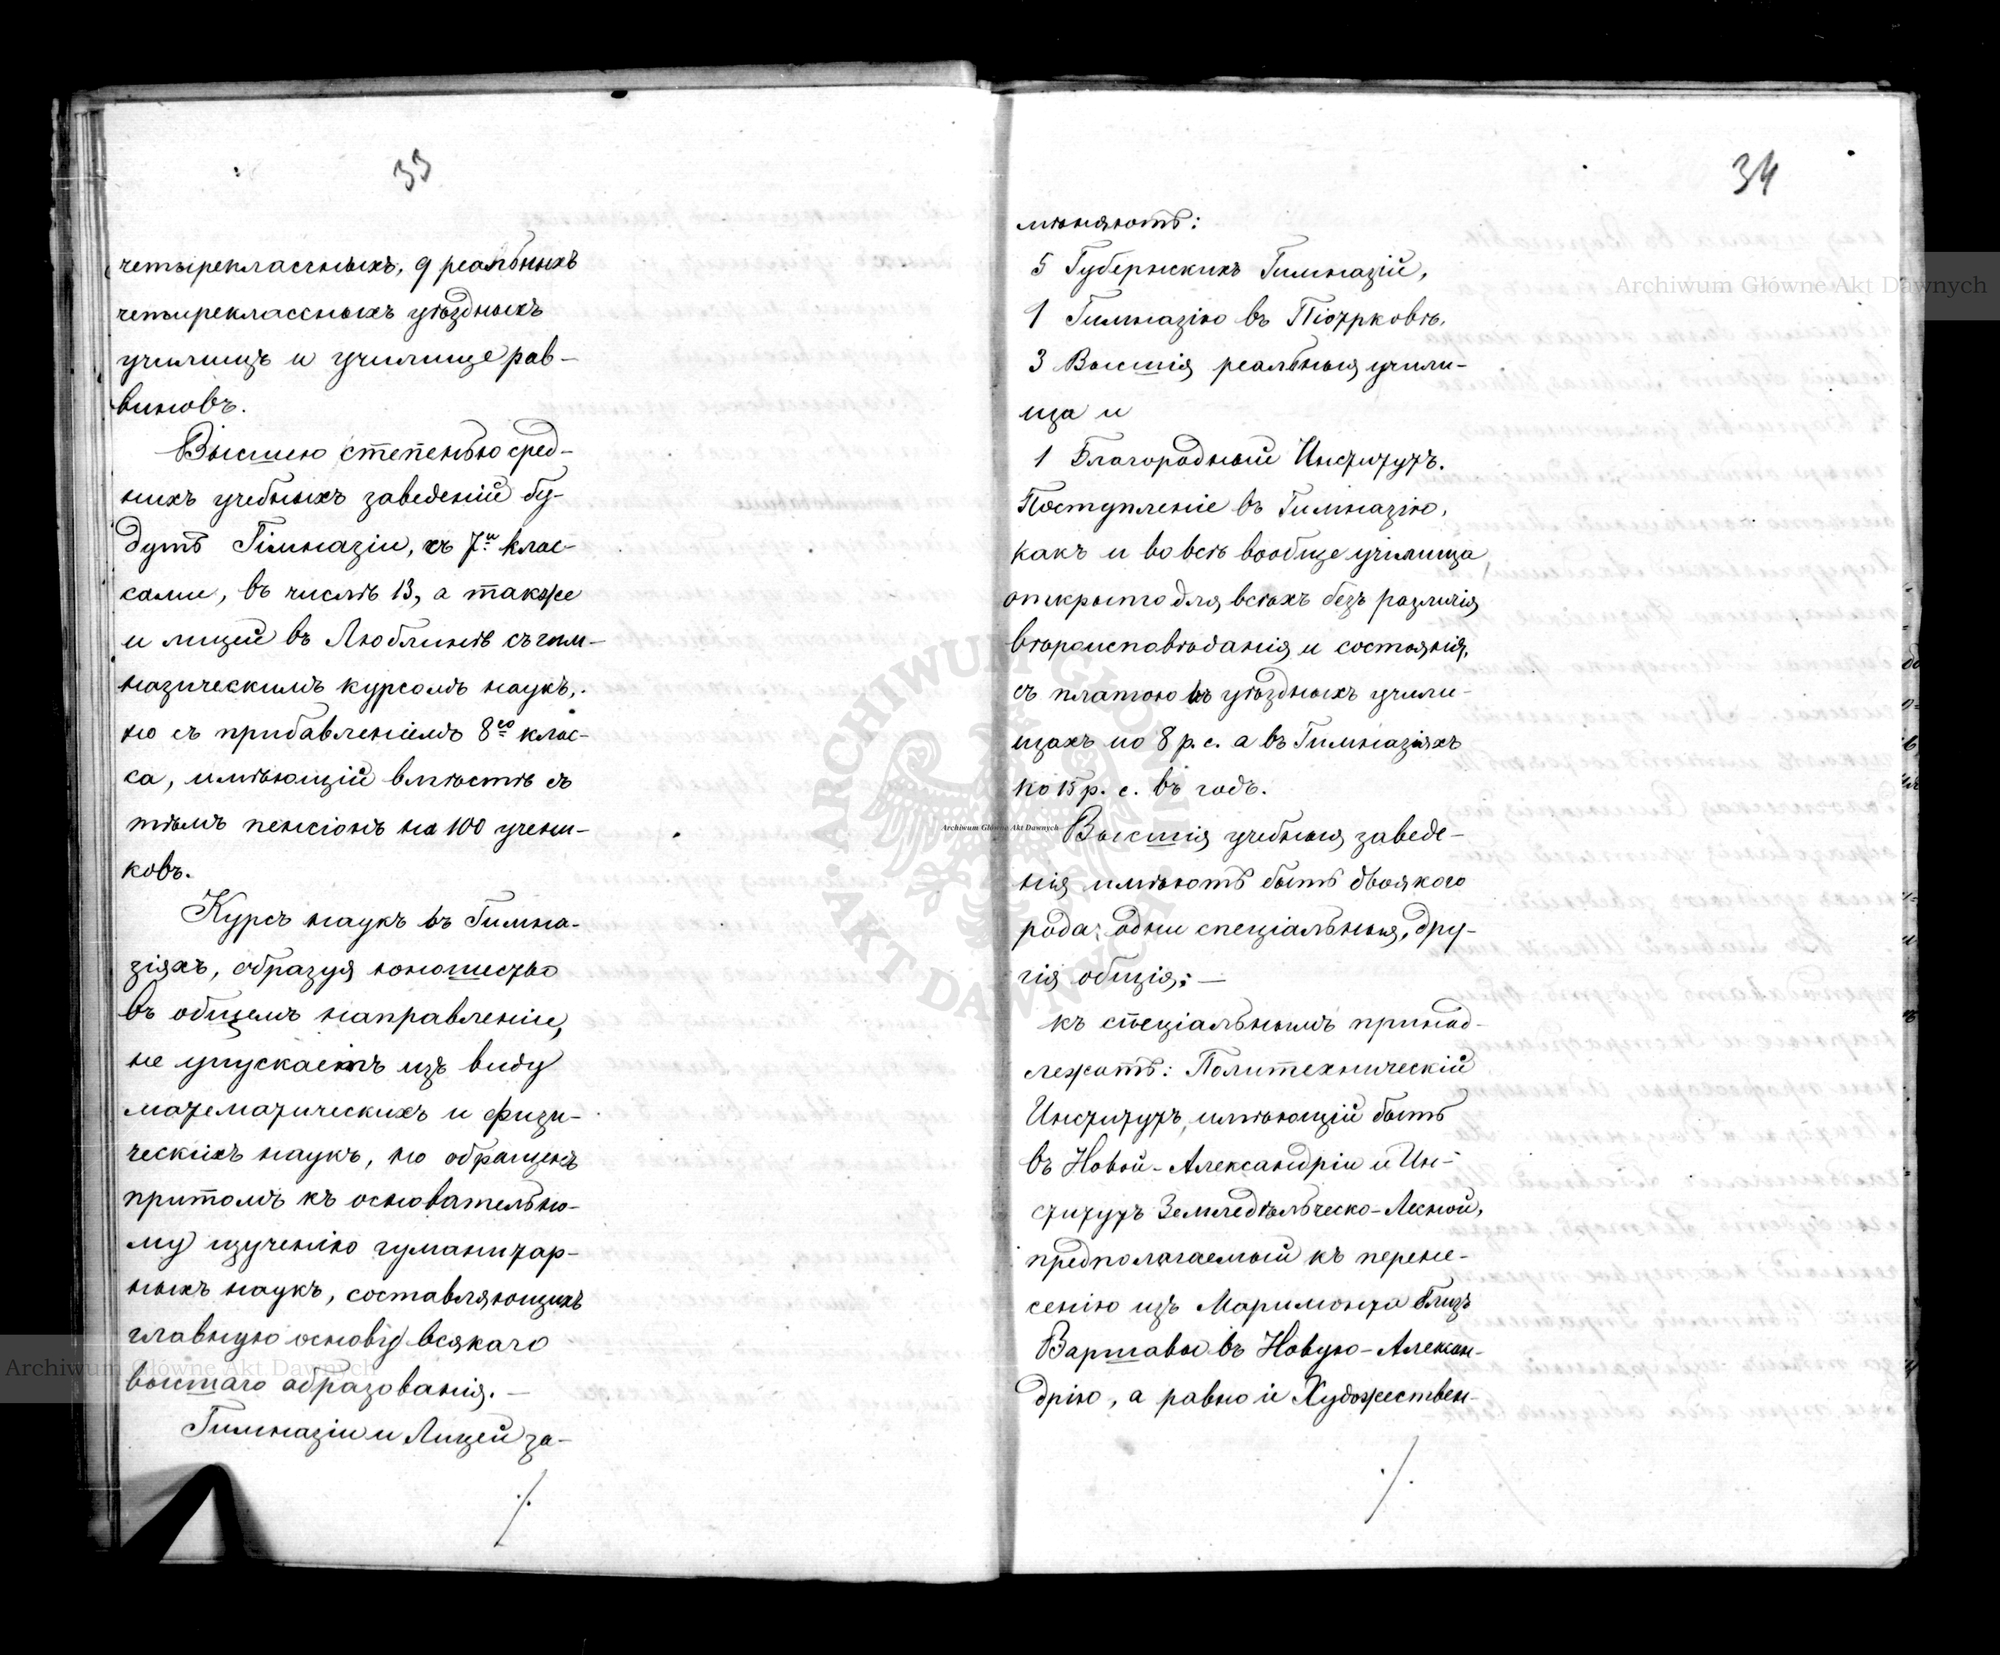 33
четыреклассныхъ, 9 реальныхъ
четыреклассныхъ уѣздныхъ
училищъ и училище рав-
виновъ.
Высшею степенью сред-
нихъ учебныхъ заведеній бу-
дутъ Гімназіи, съ 7и клас-
сами, въ числѣ 13, а также
и лицей въ Люблинѣ съ гим-
назическимъ курсомъ наукъ,
но съ прибавленіемъ 8го клас-
са, имѣющій вмѣстѣ съ
тѣмъ пенсіонъ на 100 учени-
ковъ.
Курсъ наукъ въ Гимна-
зіяхъ, образуя юношество
въ общемъ направленіи,
не упускаетъ изъ виду
математическихъ и физи-
ческихъ наукъ, но обращенъ
притомъ къ основательно-
му изученію гуманитар-
ныхъ наукъ, составляющихъ
главную основу всякаго
высшаго образованія. —
Гимназіи и Лицей за-
./.
34
мѣняютъ:
5 Губернскихъ Гимназій,
1 Гимназію въ Піотрковѣ,
3 Высшія реальныя учили-
ща и
1 Благородный Институтъ.
Поступленіе въ Гимназію,
какъ и во всѣ вообще училища,
открыто для всѣхъ безъ различія
вѣроисповѣданія и состоянія,
съ платою въ уѣздныхъ учили-
щахъ по 8 р. с. а въ Гимназіяхъ
по 15 р. с. въ годъ.
Высшія учебныя заведе-
нія имѣютъ быть двоякого
рода: одни спеціальныя, дру-
гія общія; —
къ спеціальнымъ принад-
лежатъ: Политехническій
Институтъ, имѣющій быть
въ Новой-Александріи и Ин-
ститутъ Земледѣльческо-Лесной,
предполагаемый къ перене-
сенію изъ Маримонта близъ
Варшавы въ Новую-Алексан-
дрію, а равно и Художествен-
./.
Archiwum Główne Akt Dawnych
Archiwum Główne Akt Dawnych
Archiwum Główne Akt Dawnych
ARCHIWUM GŁÓWNE AKT DAWNYCH